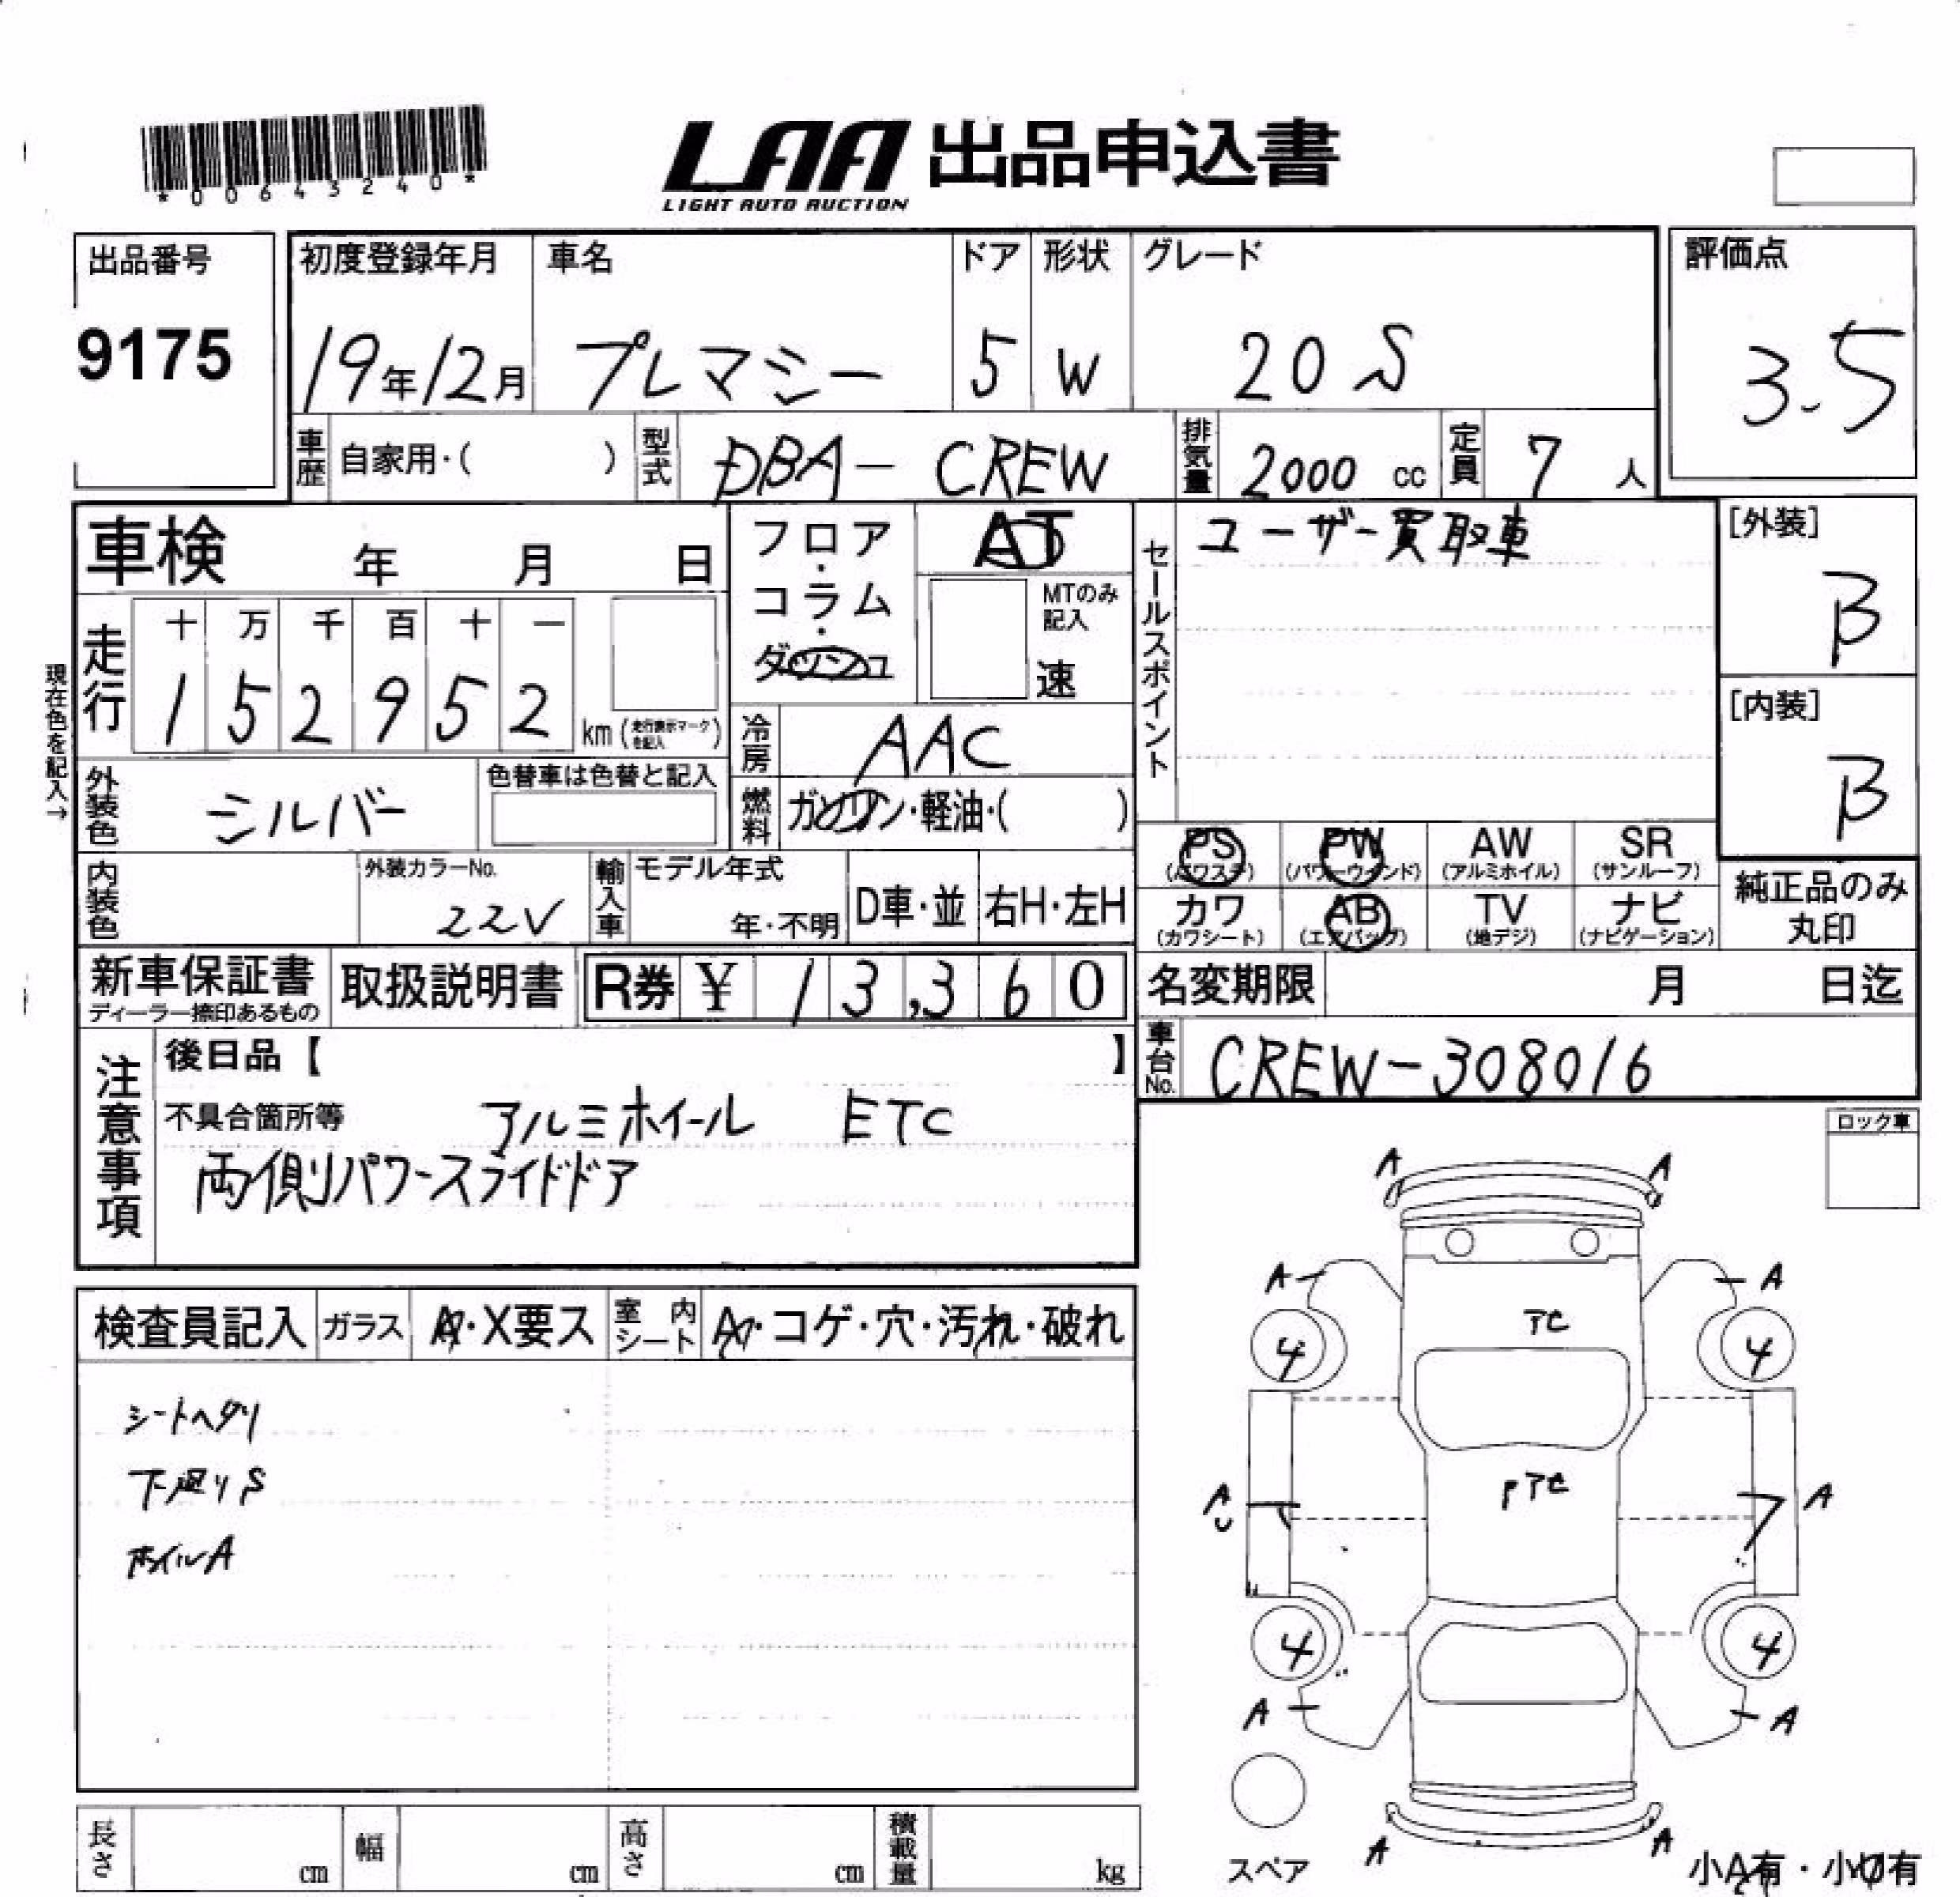 *00643240*
LAA 出品申込書
LIGHT AUTO AUCTION
出品番号
9175
初度登録年月 車名 ドア 形状 グレード
19年12月 プレマシー 5 W 20S
評価点
3.5
車歴 自家用・( ) 型式 DBA- CREW 排気量 2000 cc 定員 7 人
車検 年 月 日
フロア・コラム・ダッシュ
AT
MTのみ記入
速
セールスポイント
ユーザー買取車
[外装]
B
[内装]
B
現在色を記入→
走行 十 万 千 百 十 一
1 5 2 9 5 2 km (走行表示マークを記入)
冷房 AAC
外装色 シルバー 色替車は色替と記入
燃料 ガソリン・軽油・( )
PS PW AW SR
(パワステ) (パワーウインド) (アルミホイル) (サンルーフ)
カワ AB TV ナビ
(カワシート) (エアバッグ) (地デジ) (ナビゲーション)
純正品のみ
丸印
内装色 外装カラーNo. 22V
輸入車 モデル年式 年・不明 D車・並 右H・左H
新車保証書 取扱説明書 R券 ¥ 13,360
ディーラー捺印あるもの
名変期限 月 日迄
車台No. CREW-308016
注意事項
後日品【 】
不具合箇所等 アルミホイール ETC
両側パワースライドドア
ロック車
検査員記入 ガラス A・X要ス 室内シート A・コゲ・穴・汚れ・破れ
シートヘタリ
下廻りS
ホイルA
A A
A A
TC
4 4
PTC
A A
U
4 4
A A
A A
スペア
小A有・小U有
長さ cm 幅 cm 高さ cm 積載量 kg